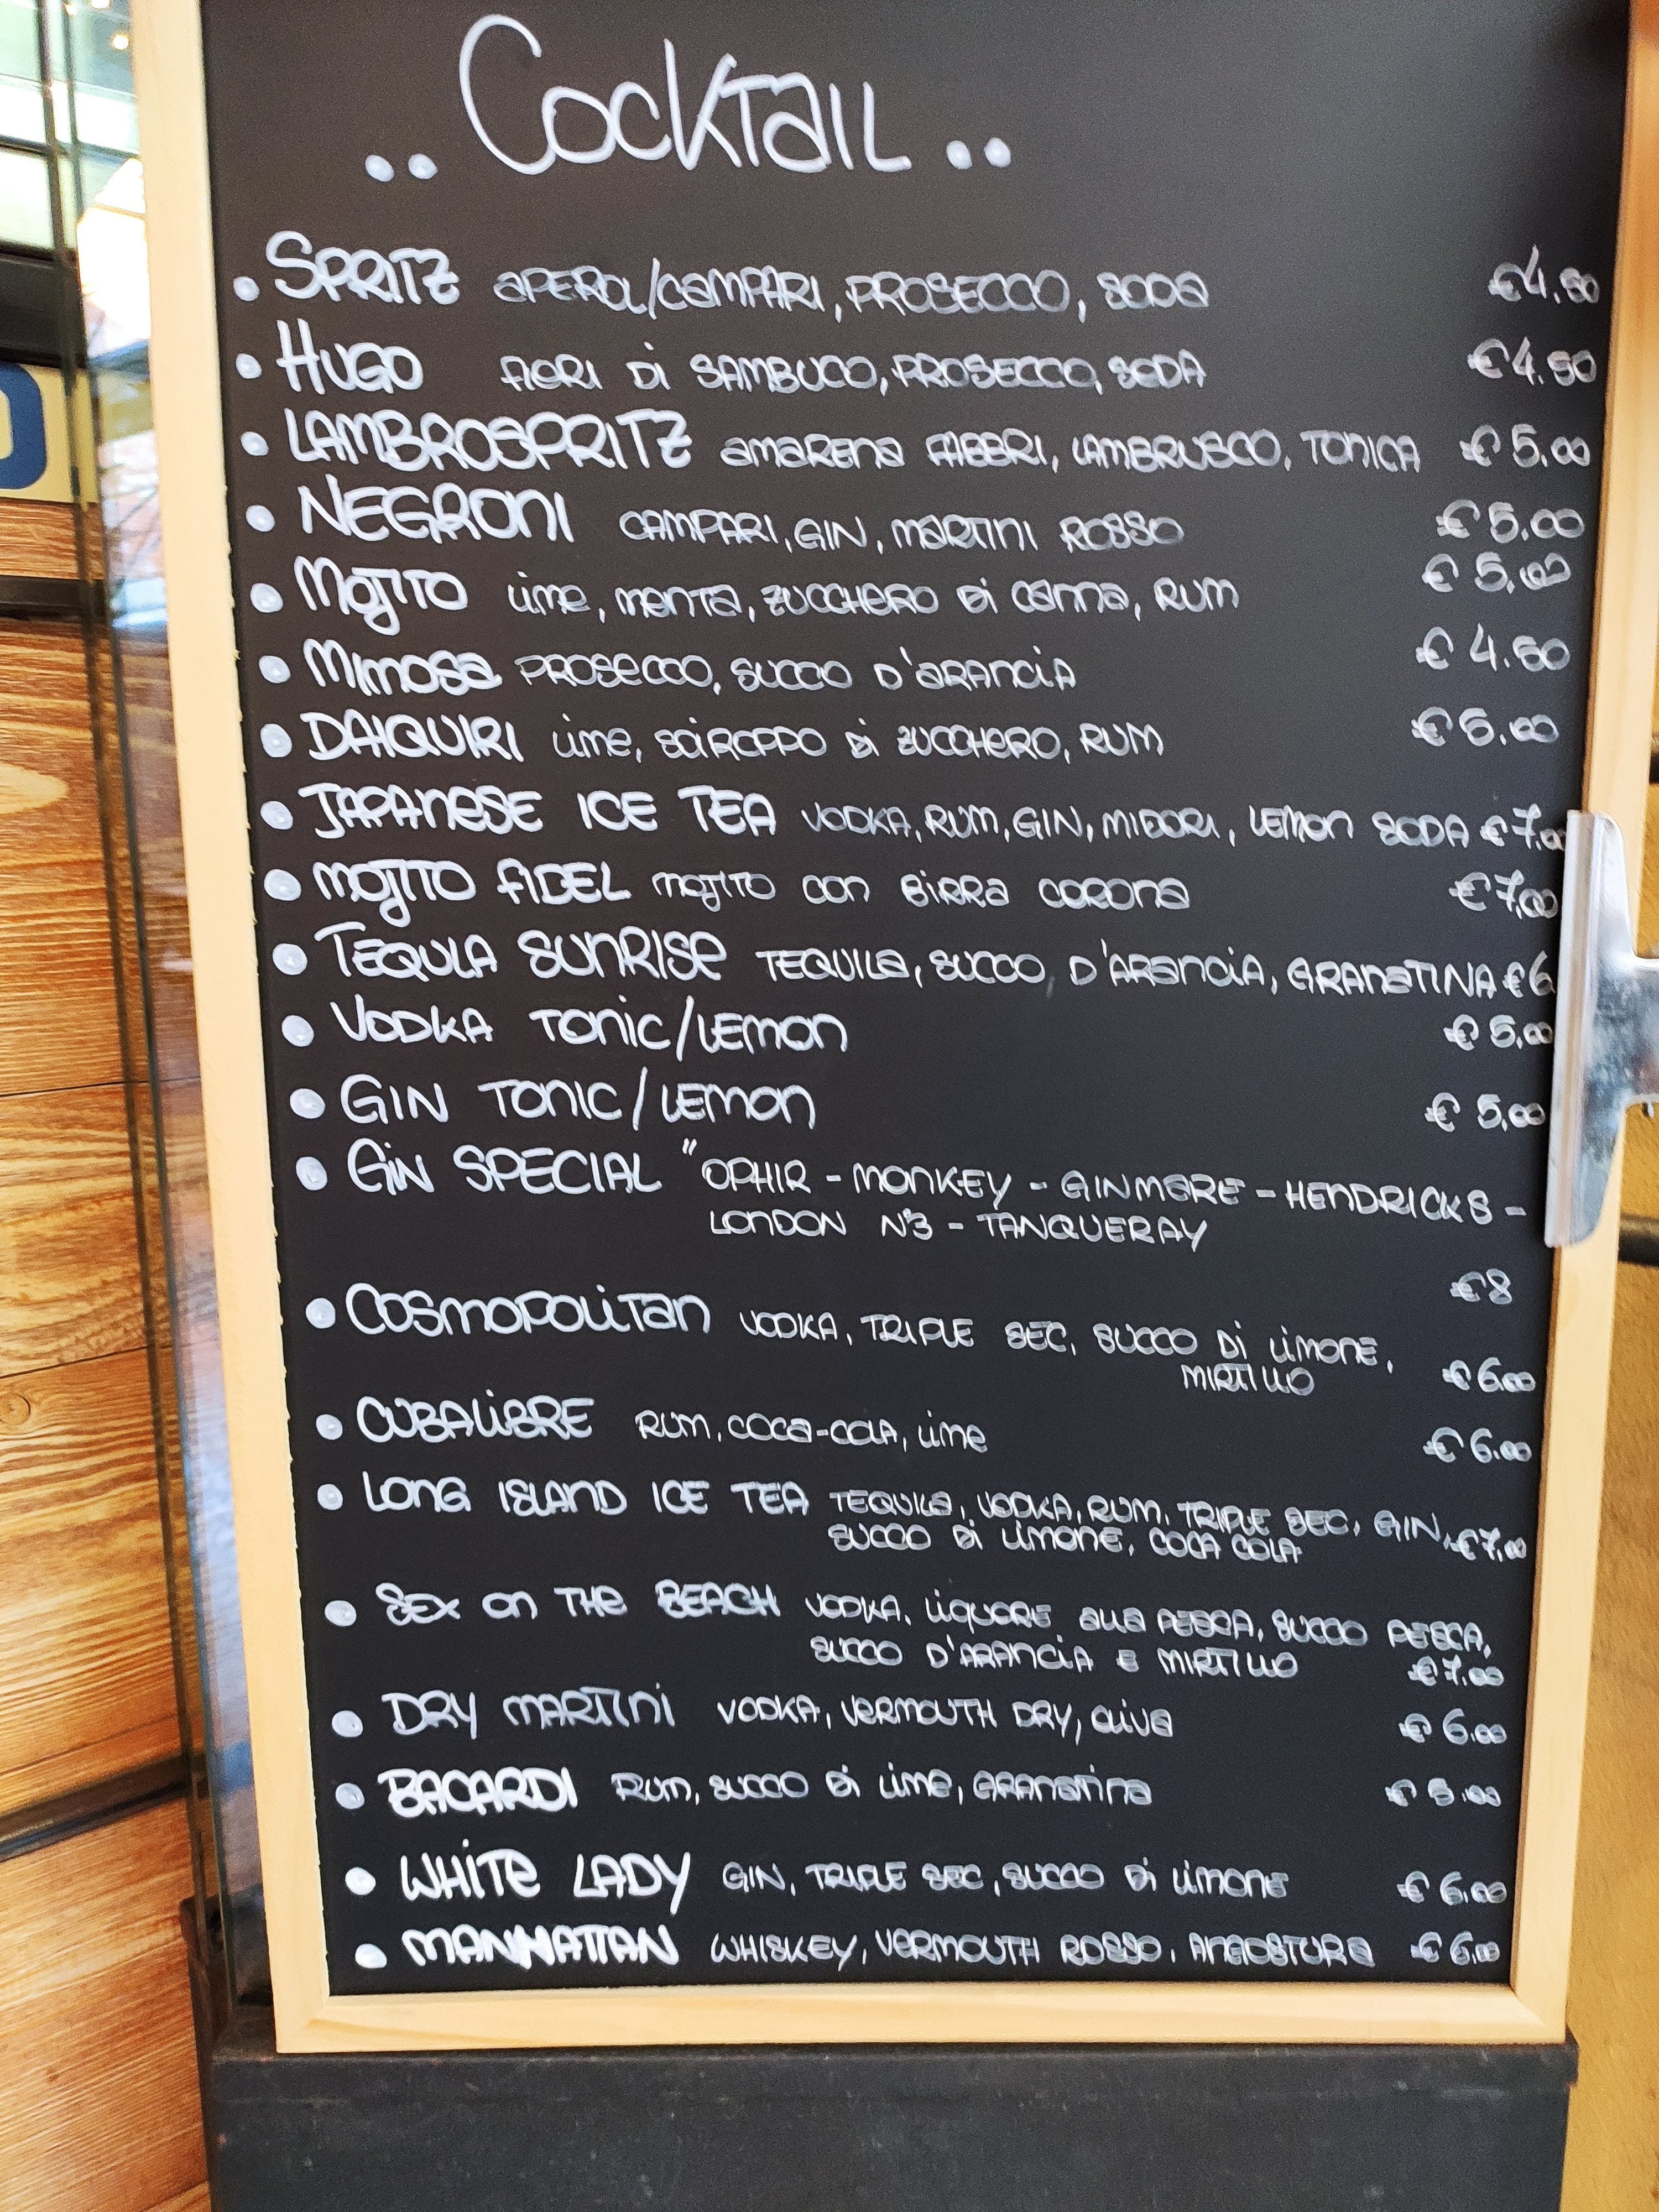 .. Cocktail ..
• Spritz aperol/campari, prosecco, soda €4.50
• Hugo fiori di sambuco, prosecco, soda €4.50
• Lambrospritz amarena fabbri, lambrusco, tonica €5.00
• Negroni campari, gin, martini rosso €5.00
• Mojito lime, menta, zucchero di canna, rum €5,00
• Mimosa prosecco, succo d'arancia €4.50
• Daiquiri lime, sciroppo di zucchero, rum
• Japanese ice tea vodka, rum, gin, midori, lemon soda €7.00
• Mojito fidel mojito con birra corona €7,00
• Tequla sunrise tequila, succo, d'arancia, granatina €6
• Vodka tonic/lemon €5,00
• Gin tonic/lemon €5,00
• Gin special "ophir - monkey - ginmare - hendricks -
london n°3 - tanqueray
€8
• Cosmopolitan vodka, triple sec, succo di limone,
mirtillo €6.00
• Cubalibre rum, coca-cola, lime €6.00
• Long island ice tea tequila, vodka, rum, triple sec, gin,
succo di limone, coca cola €7,00
• Sex on the beach vodka, liquore alla pesca, succo pesca,
succo d'arancia e mirtillo €7.00
• Dry martini vodka, vermouth dry, oliva €6.00
• Bacardi rum, succo di lime, granatina
• White lady gin, triple sec, succo di limone €6.00
• Manhattan whiskey, vermouth rosso, angostura €6.00